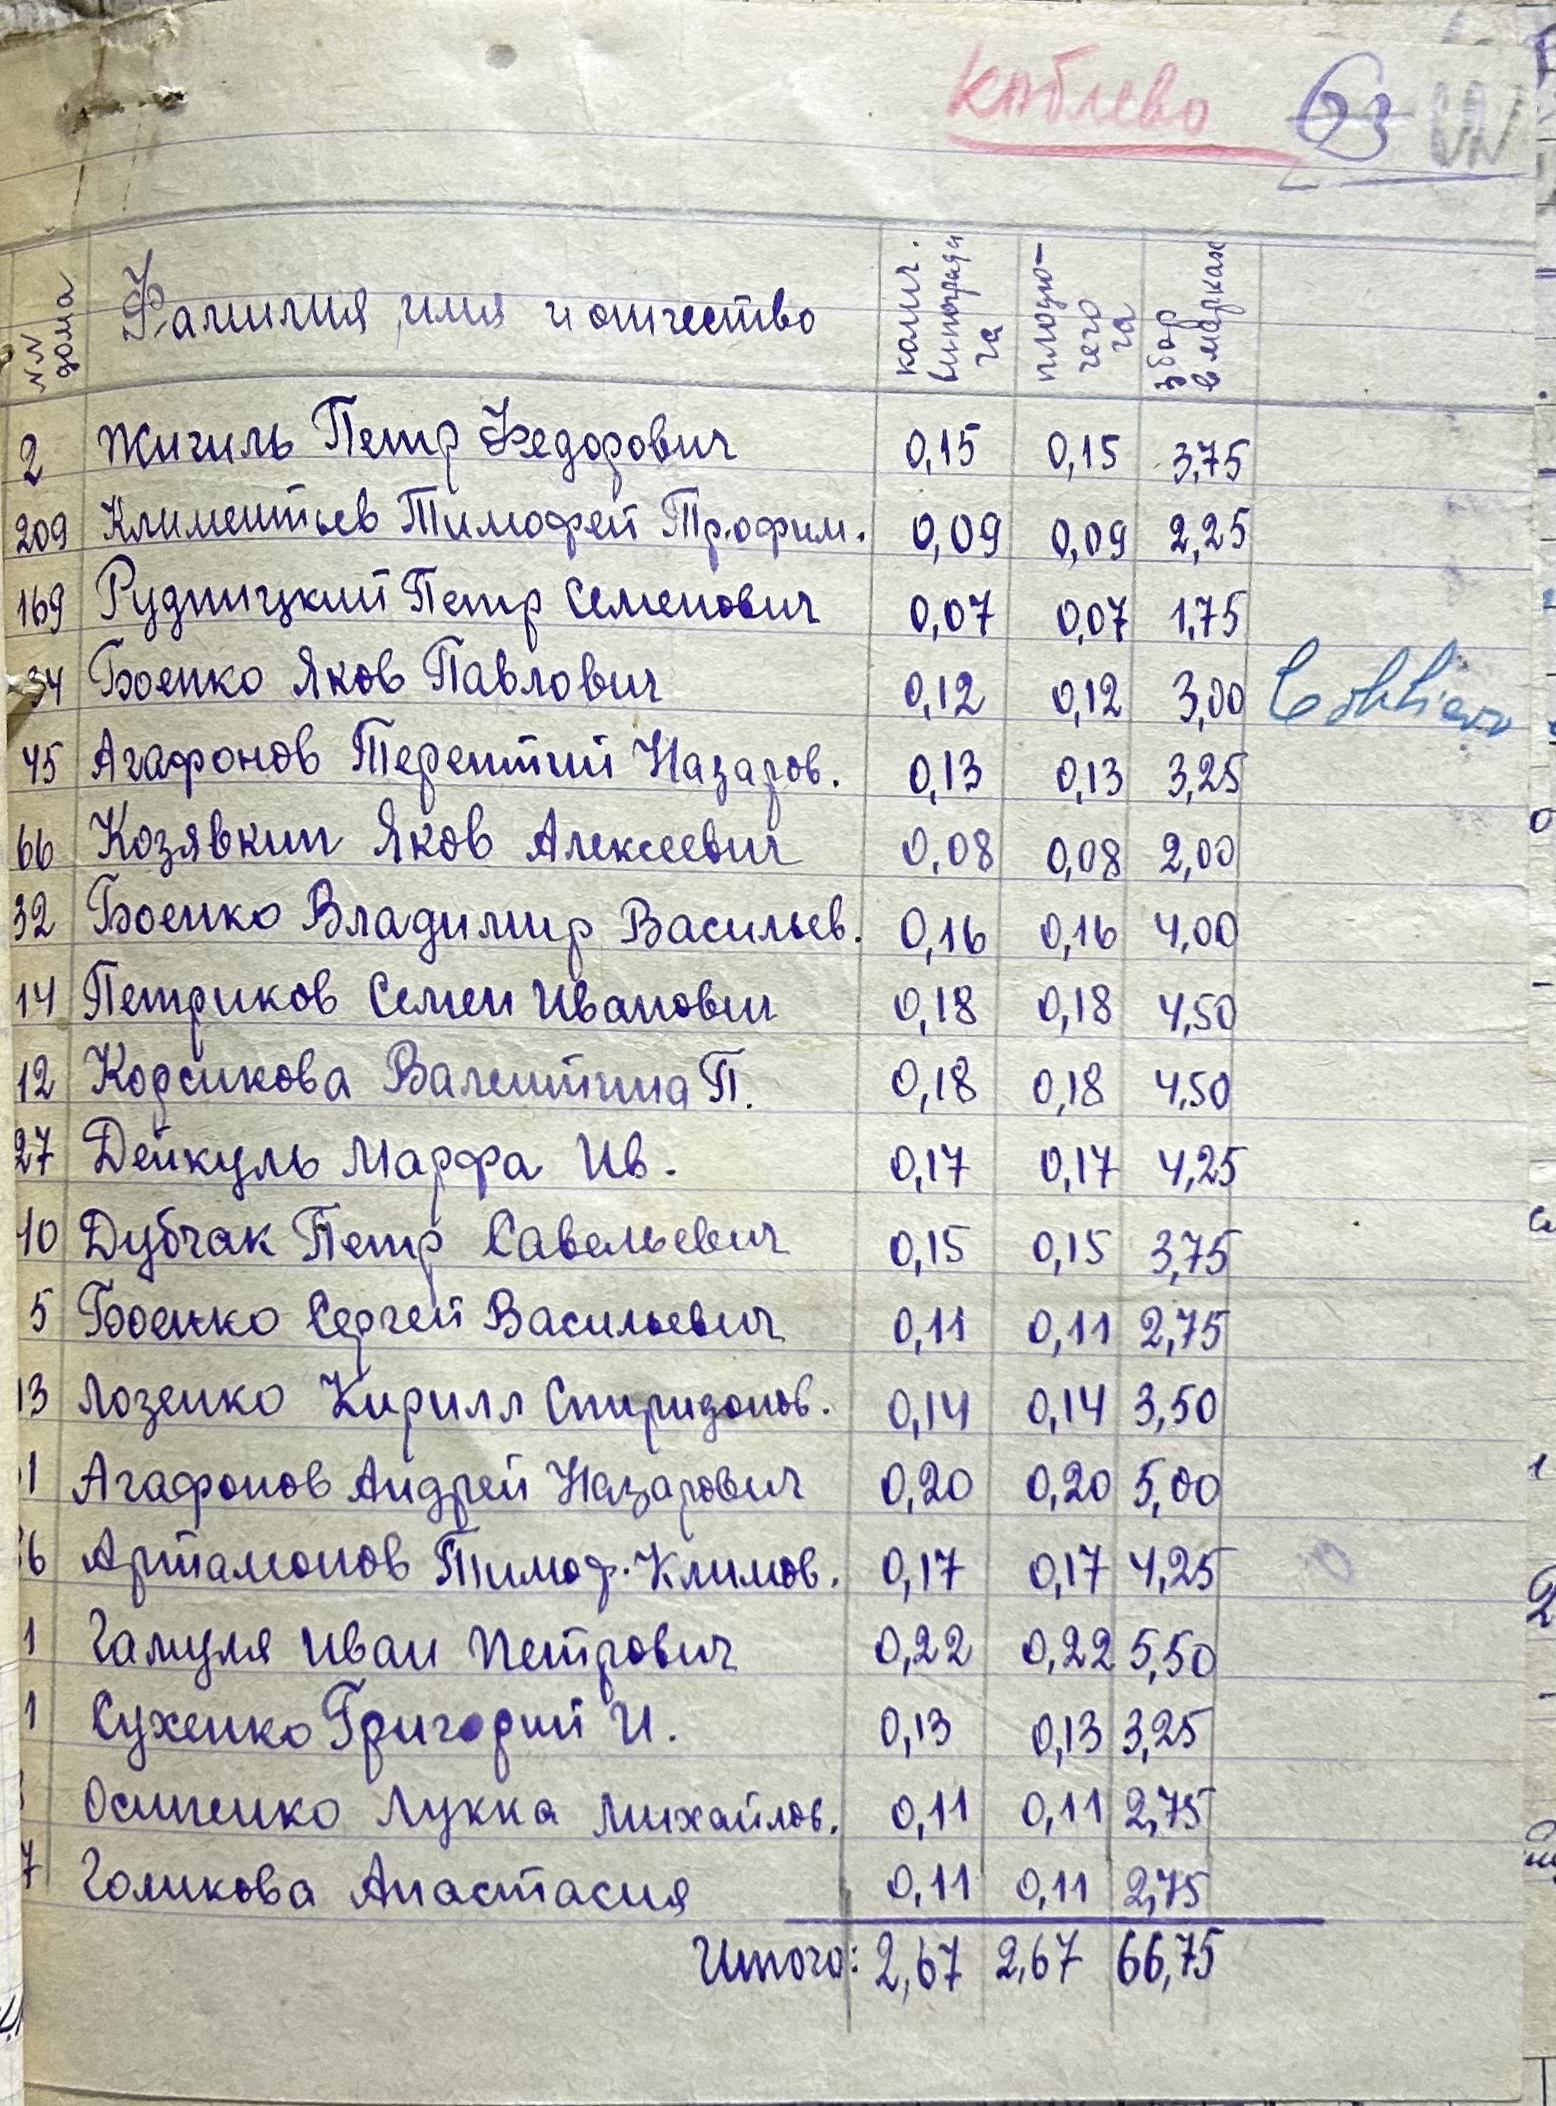 Коблево 63
NN дома Фамилия, имя и отчество колич. винограда га плодю-чего га Збор в марках
2 Жигиль Петр Федорович 0,15 0,15 3,75
209 Климентьев Тимофей Трофим. 0,09 0,09 2,25
169 Рудницкий Петр Семенович 0,07 0,07 1,75
34 Боенко Яков Павлович 0,12 0,12 3,00
45 Агафонов Терентий Назаров. 0,13 0,13 3,25
66 Козявкин Яков Алексеевич 0,08 0,08 2,00
32 Боенко Владимир Васильев. 0,16 0,16 4,00
14 Петриков Семен Иванович 0,18 0,18 4,50
12 Кодсикова Валентина П. 0,18 0,18 4,50
27 Дейкуль Марфа Ив. 0,17 0,17 4,25
10 Дубчак Петр Савельевич 0,15 0,15 3,75
5 Боенко Сергей Васильевич 0,11 0,11 2,75
13 Лозенко Кирилл Спиридонов. 0,14 0,14 3,50
1 Агафонов Андрей Назарович 0,20 0,20 5,00
6 Артамонов Тимоф. Климов. 0,17 0,17 4,25
1 Гамуля Иван Петрович 0,22 0,22 5,50
1 Сухенко Григорий И. 0,13 0,13 3,25
Осипенко Лукка Михайлов. 0,11 0,11 2,75
7 Голикова Анастасия 0,11 0,11 2,75
Итого: 2,67 2,67 66,75